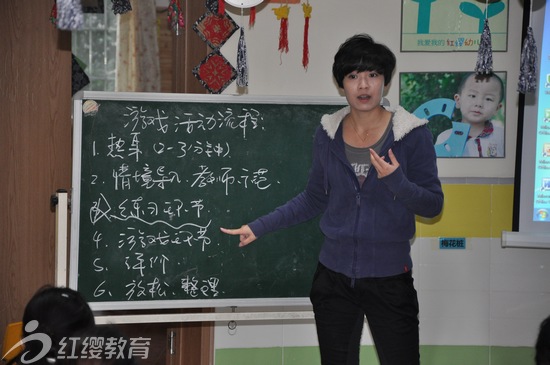 我爱我的红缨幼儿
游戏活动流程:
1. 热身 (2-3分钟)
2. 情境导入 教师示范
3. 练习环节
4. 游戏环节
5. 评价
6. 放松、整理
梅花桩
红缨教育